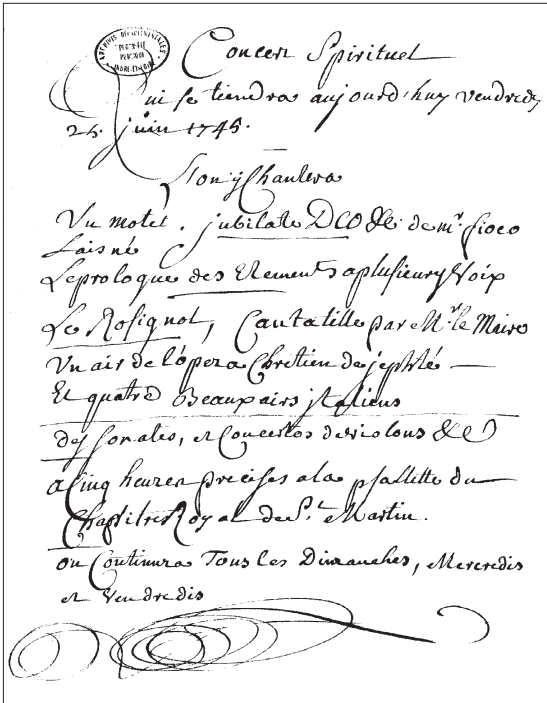 ARCHIVES DÉPARTEMENTALES
INDRE-ET-LOIRE
Concert Spirituel
Qui se tiendra aujourd'huy vendredy
25. juin 1745.
L'on y Chantera
Un motet. jubilate DEO &c. de mr. fioco
Laisné
Le prologue des Elements a plusieurs Voix
Le Rosignol, Cantatille par Mr. le Maire
Un air de l'opera Chrétien de jephté
Et quatre Beaux airs jtaliens
des sonates, et Concertos de violons &c
a Cinq heures precises a la psallette du
Chapitre Royal de St. Martin.
on Continura Tous les Dimanches, Mercredis
et Vendredis